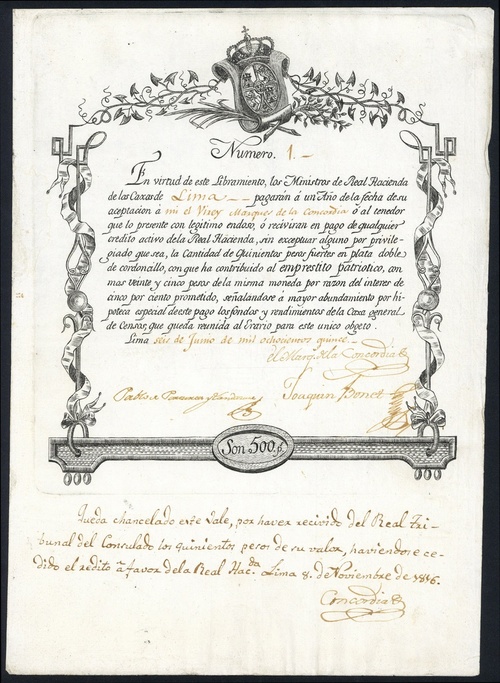 Numero. 1. -
En virtud de este Libramiento, los Ministros de Real Hacienda
de las Caxas de Lima - - pagarán á un Año de la fecha de su
aceptacion á mi el Virey Marques de la Concordia ó al tenedor
que lo presente con legitimo endoso, ó reciviran en pago de qualquier
credito activo de la Real Hacienda, sin exceptuar alguno por privile-
giado que sea, la Cantidad de Quinientos pesos fuertes en plata doble
de cordoncillo, con que ha contribuido al emprestito patriotico, con
mas veinte y cinco pesos de la misma moneda por razon del interes de
cinco por ciento prometido, señalandose á mayor abundamiento por hi-
poteca especial de este pago los fondos y rendimientos de la Caxa general
de Censos, que queda reunida al Erario para este unico objeto.
Lima seis de Junio de mil ochocientos quinse.
el Marq. de la Concordia
Joaquin Bonet
Son 500 p.s
Queda chancelado este Vale, por haver recivido del Real Tri-
bunal del Consulado los quinientos pesos de su valor, haviendose ce-
dido el rédito á favor de la Real Hac.da Lima 8. de Noviembre de 1816.
Concordia